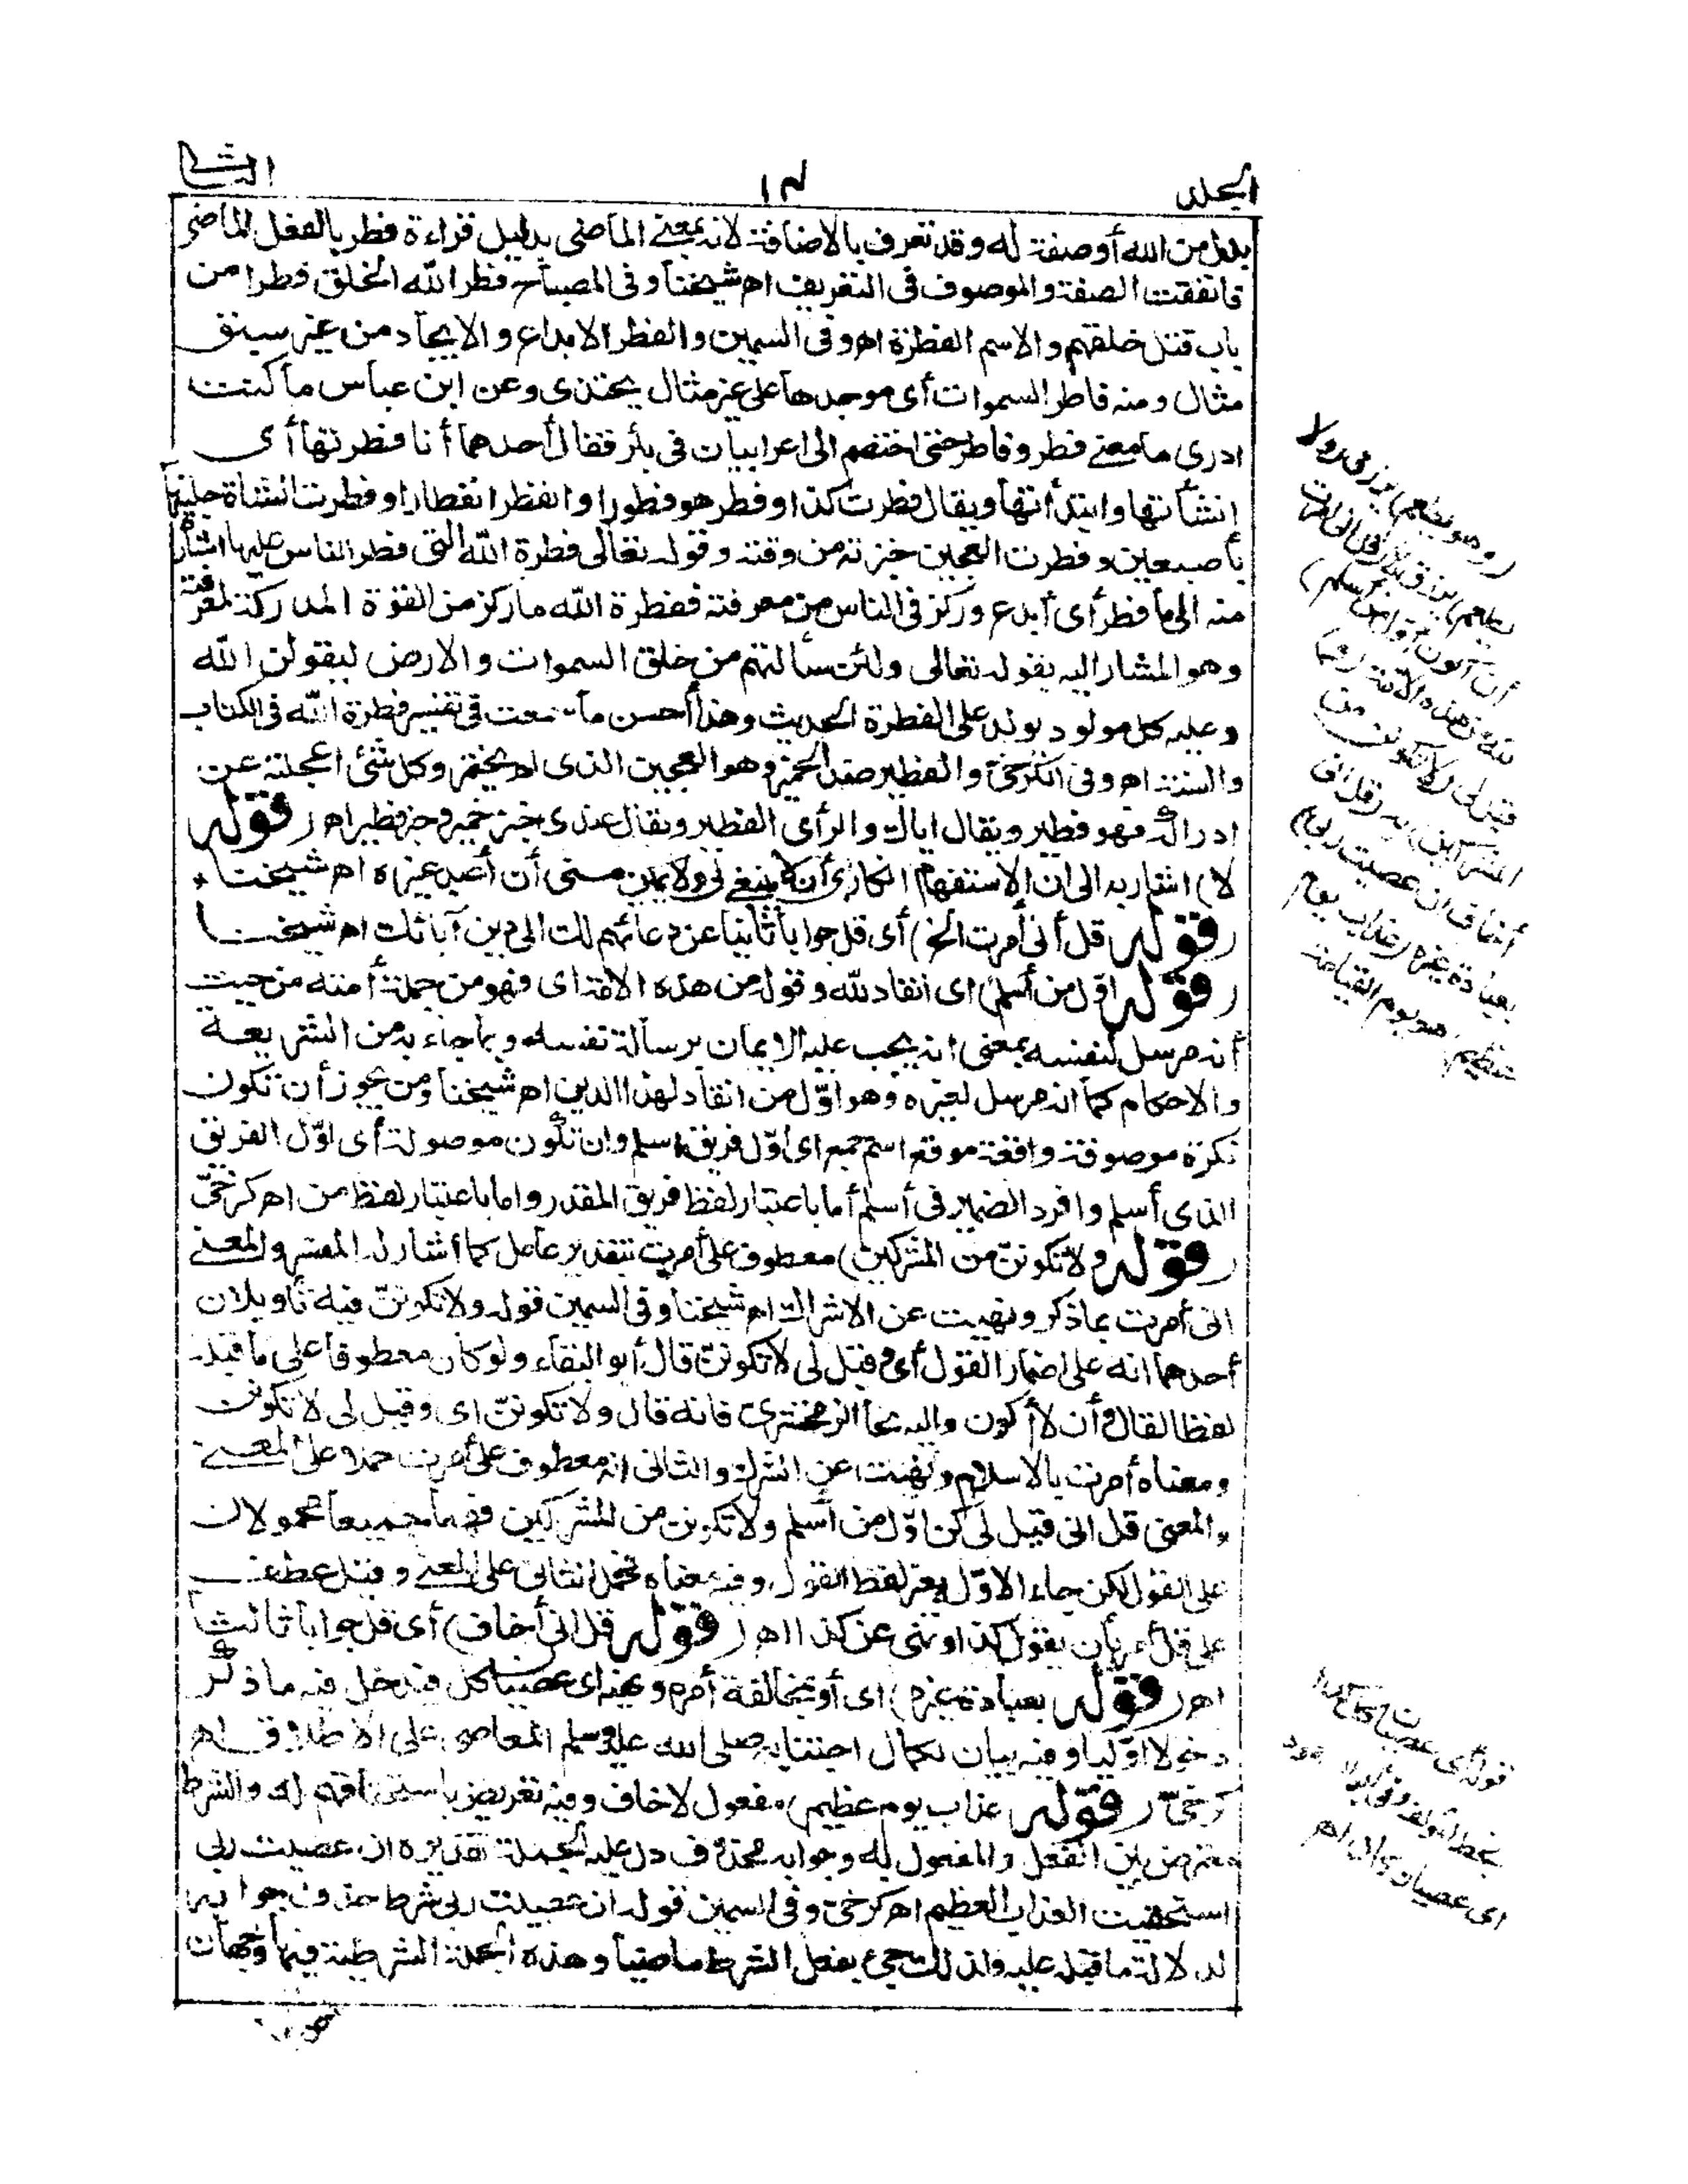 المجلد
١٣
الثا
بدل من الله أو صفة له وقد تعرف بالاضافة لانه بمعنى الماضى بدليل قراءة فطر بالفعل الماضى
فاتفقت الصفة والموصوف فى التعريف اه شيخنا وفى المصباح فطر الله الخلق فطرا من
باب قتل خلقهم والاسم الفطرة اه وفى السمين والفطر الابداع والايجاد من غير سبق
مثال ومنه فاطر السموات أى موجدها على غير مثال يحتذى وعن ابن عباس ما كنت
ادرى ما معنى فطر وفاطر حتى اختصم الى اعرابيان فى بئر فقال أحدهما أنا فطرتها أى
انشأتها وابتدأتها ويقال فطرت كذا وفطر هو فطورا وانفطر انفطارا وفطرت الشاة حلبتها
بأصبعين وفطرت العجين خبزته من وقته وقوله تعالى فطرة الله التى فطر الناس عليها اشارة
منه الى ما فطر أى أبدع وركز فى الناس من معرفته ففطرة الله ما ركز من القوة المدركة لمعرفته
وهو المشار اليه بقوله تعالى ولئن سألتهم من خلق السموات والارض ليقولن الله
وعليه كل مولود يولد على الفطرة الحديث وهذا أحسن ما سمعت فى تفسير فطرة الله فى الكتاب
والسنة اه وفى الكرخىّ والفطير ضد الخمير وهو العجين الذى لم يختمر وكل شئ اعجلته عن
ادراكه فهو فطير ويقال اياك والرأى الفطير ويقال عندى خبز خمير وخبز فطير اه (قوله
لا) اشار به الى ان الاستفهام انكارى أى لا ينبغى لى ولا يمكن منى أن أعبد غيره اه شيخنا *
(قوله قل أنى أمرت الخ) أى قل جوابا ثانيا عن دعائهم لك الى دين آبائك اه شيخنا
(قوله اوّل من أسلم) اى انقاد لله وقوله من هذه الامة اى فهو من جملة أمته من حيث
أنه مرسل لنفسه بمعنى انه يجب عليه الايمان برسالة نفسه وبما جاء به من الشريعة
والاحكام كما انه مرسل لغيره وهو اوّل من انقاد لهذا الدين اه شيخنا ومن يجوز أن تكون
نكرة موصوفة واقعة موقع اسم جمع اى اوّل فريق اسلم وان تكون موصولة أى اوّل الفريق
الذى أسلم وافرد الضمير فى أسلم أما باعتبار لفظ فريق المقدر واما باعتبار لفظ من اه كرخىّ
(قوله ولا تكوننّ من المشركين) معطوف على أمرت بتقدير عامل كما أشار له المفسر والمعنى
انى أمرت بما ذكر ونهيت عن الاشراك اه شيخنا وفى السمين قوله ولا تكوننّ فيه تأويلان
أحدهما انه على اضمار القول أى وقيل لى لا تكوننّ قال أبو البقاء ولو كان معطوفا على ما قبله
لفظا لقال وأن لا أكون واليه نحا الزمخشرى فانه قال ولا تكوننّ اى وقيل لى لا تكونن
ومعناه أمرت بالاسلام ونهيت عن الشرك والثانى انه معطوف على أمرت حملا على المعنى
والمعنى قل انى قيل لى كن اوّل من أسلم ولا تكونن من المشركين فهما جميعا محمولان
على القول لكن جاء الاوّل بغير لفظ القول وفيه معناه فحمل الثانى على المعنى وقيل عطف
على قل أمر بأن يقول كذا ونهى عن كذا اه (قوله قل انى أخاف) أى قل جوابا ثالثا
اه (قوله بعبادة غيره) اى أو بمخالفة أمره ونهيه اى عصيان كل فيدخل فيه ما ذكر
دخولا اوّليا وفيه بيان لكمال اجتنابه صلى الله عليه وسلم المعاصى على الاطلاق اه
كرخىّ (قوله عذاب يوم عظيم) مفعول لاخاف وفيه تعريض باستحقاقهم له والشرط
معترض بين الفعل والمفعول له وجوابه محذوف دل عليه الجملة تقديره ان عصيت ربى
استحقيت العذاب العظيم اه كرخىّ وفى السمين قوله ان عصيت ربى شرط حذف جوابه
لدلالة ما قبله عليه ولذلك جئ بفعل الشرط ماضيا وهذه الجملة الشرطية فيها وجهان
(وهو يطعم) يرزق (ولا
يطعم) يرزق
أن أكون أول من أسلم)
لله من هذه الأمة (و)
قيل لى (لا تكونن من
المشركين) به (قل انى
أخاف ان عصيت ربى)
بعبادة غيره (عذاب يوم
عظيم) هو يوم القيامة